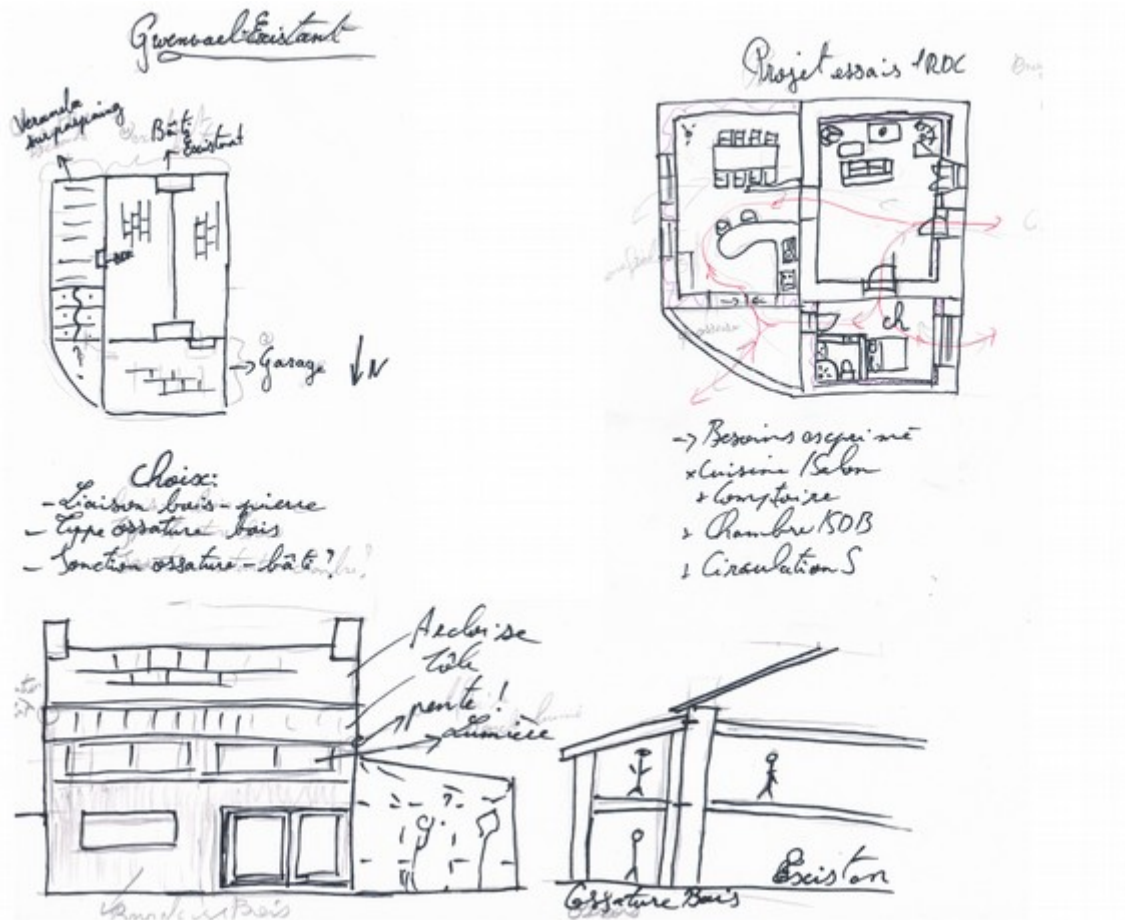 Gwenvael Existant
Veranda
sur parping
Bâti
Existant
Garage
N
Choix:
- Liaison bois-pierre
- Type ossature bois
- Jonction ossature-bâti?
Projet essais 1RDC
ch
-> Besoins exprimé
Cuisine / Salon
+ Comptoire
Chambre / SDB
CirculationS
Ardoise
tôle
pente!
Lumière
Existan
Ossature Bois